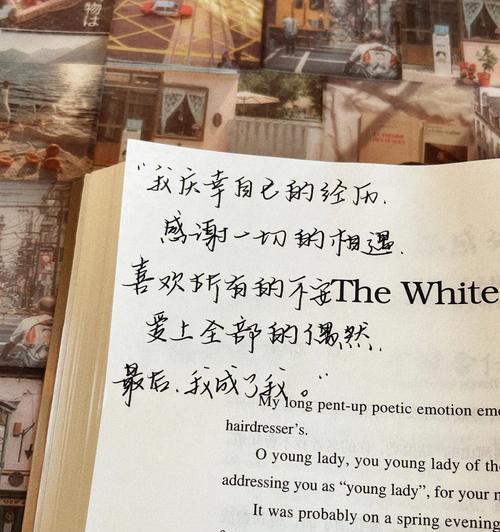 物は
"我庆幸自己的经历.
感谢一切的相遇.
喜欢所有的不安
The White
爱上全部的偶然.
最后.我成了我。"
My long pent-up poetic emotion eme
hairdresser's.
O young lady, you young lady of the
addressing you as “young lady”, for your n
It was probably on a spring evening